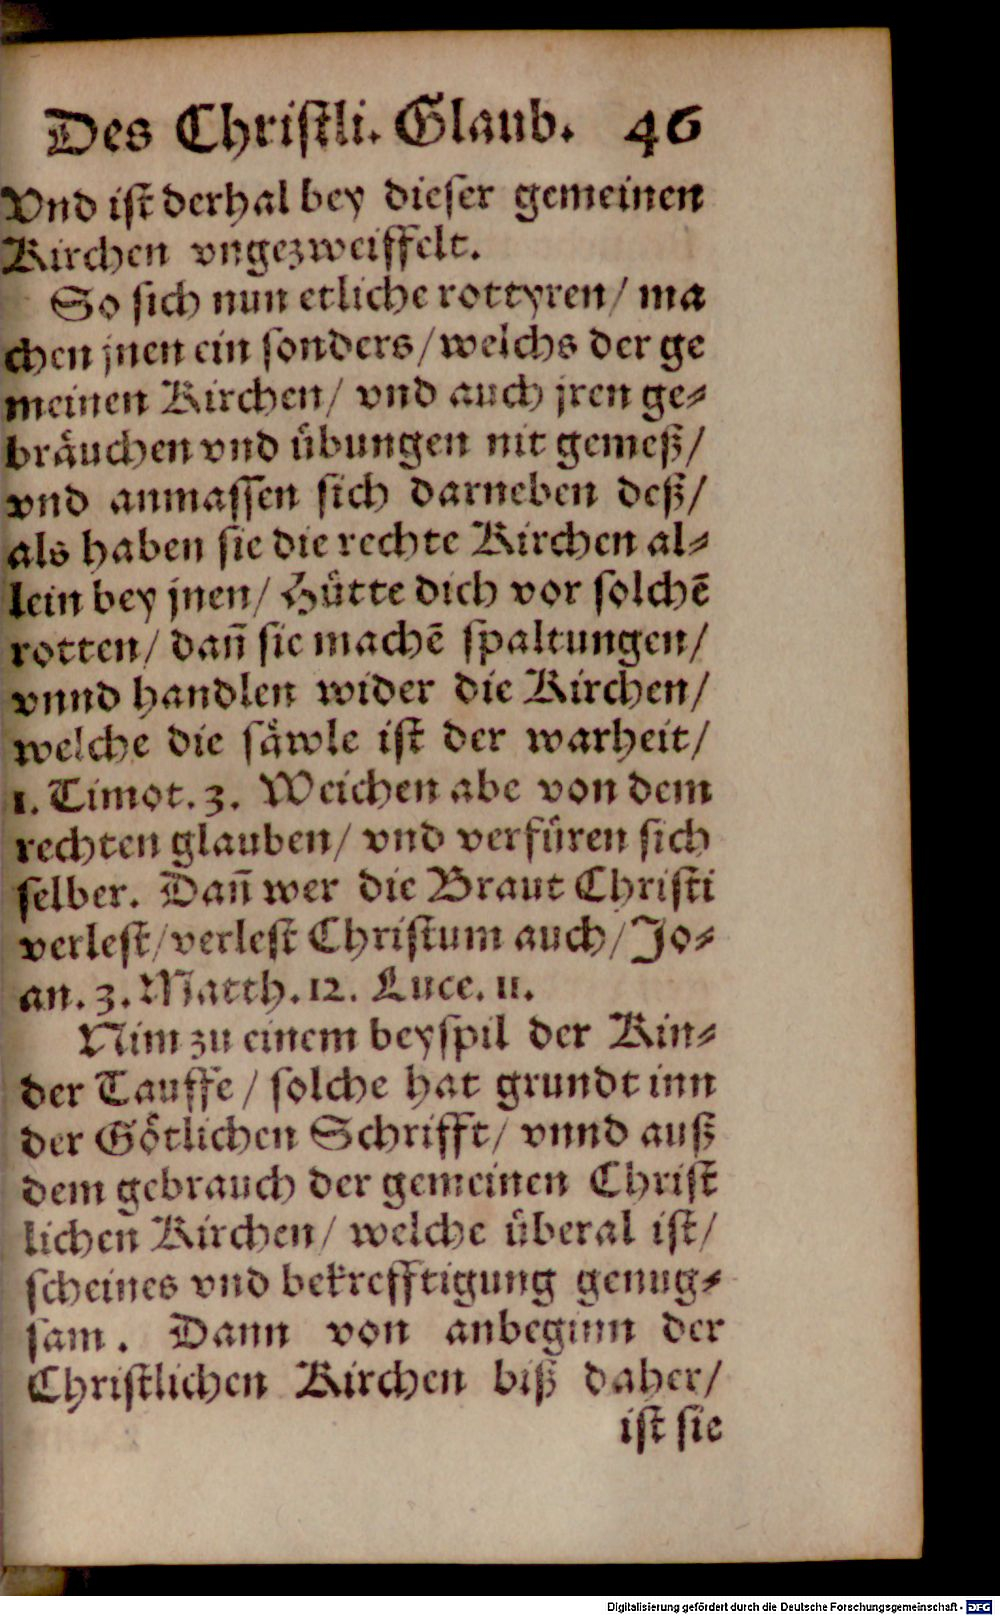 Des Christli. Glaub. 46
Vnd ist derhal bey dieser gemeinen
Kirchen vngezweiffelt.
So sich nun etliche rottyren/ ma
chen jnen ein sonders/welchs der ge
meinen Kirchen/ vnd auch jren ge-
bräuchen vnd übungen nit gemeß/
vnd anmassen sich darneben deß/
als haben sie die rechte Kirchen al-
lein bey jnen/ Hütte dich vor solchē
rotten/ dañ sie machē spaltungen/
vnnd handlen wider die Kirchen/
welche die säwle ist der warheit/
1. Timot. 3. Weichen abe von dem
rechten glauben/ vnd verfüren sich
selber. Dañ wer die Braut Christi
verlest/verlest Christum auch/ Jo-
an. 3. Matth. 12. Luce. 11.
Nim zu einem beyspil der Kin-
der Tauffe/ solche hat grundt inn
der Götlichen Schrifft/ vnnd auß
dem gebrauch der gemeinen Christ
lichen Kirchen/ welche überal ist/
scheines vnd bekrefftigung genug-
sam. Dann von anbeginn der
Christlichen Kirchen biß daher/
ist sie
Digitalisierung gefördert durch die Deutsche Forschungsgemeinschaft - DFG